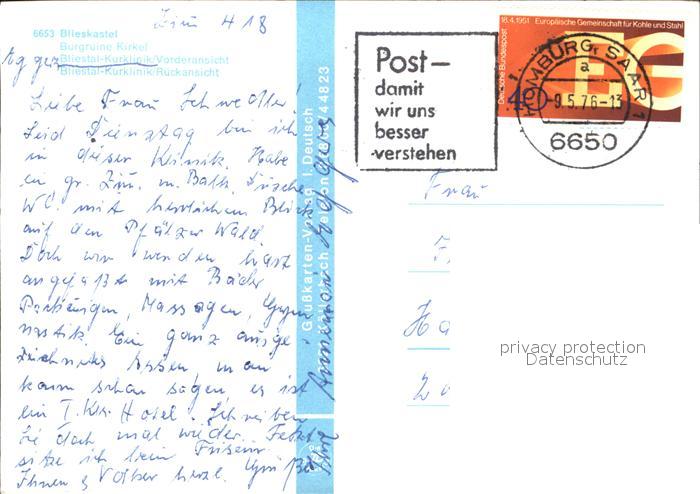 Zim 418
6653 Blieskastel
Burgruine Kirkel
Bliestal-Kurklinik/Vorderansicht
Bliestal-Kurklinik/Rückansicht
Liebe Frau
Seid Dienstag bin ich
in dieser Klinik. Habe
ein gr. Zim. m. Balk. Dusche
WC mit herrlichem Blick
auf den Pfälzer Wald.
Doch wir werden hart
angefaßt mit Bäder
Packungen, Massagen, Gym
nastik. Ein ganz ausge
zeichnetes Essen, man
kann schon sagen es ist
ein I. Kl. Hotel. Schreiben
Sie doch mal wieder. Jetzt
sitze ich beim Friseur.
Ihnen & Volker herzl.
Ihre
Grußkarten-Verlag I. Deutsch
44823
Post –
damit
wir uns
besser
verstehen
18.4.1951 Europäische Gemeinschaft für Kohle und Stahl
Deutsche Bundespost
40
EG
HOMBURG, SAAR 1
a
-9.5.76-13
6650
Frau
privacy protection
Datenschutz